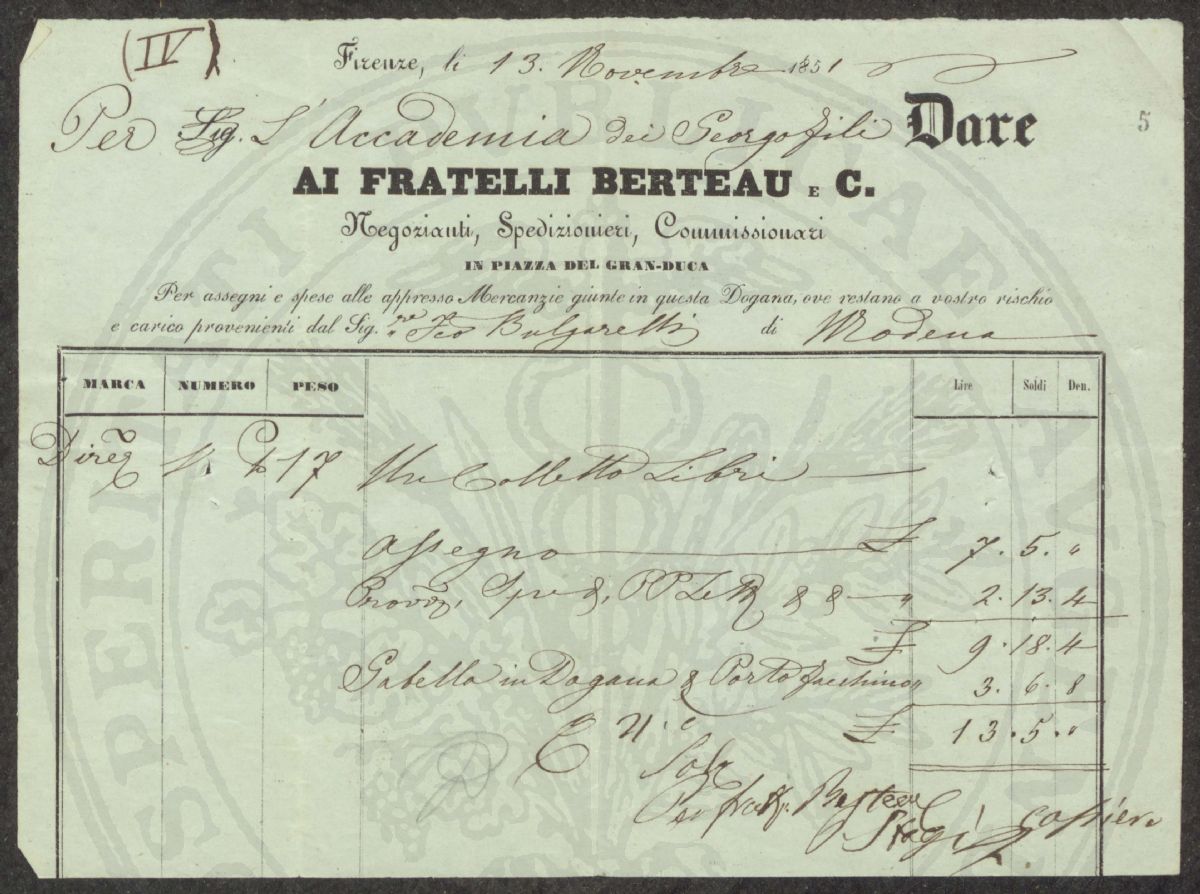 (IV)
Firenze, li 13. Novembre 1851
Per Sig. L'Accademia dei Georgofili Dare
5
AI FRATELLI BERTEAU E C.
Negozianti, Spedizionieri, Commissionari
IN PIAZZA DEL GRAN-DUCA
Per assegni e spese alle appresso Mercanzie giunte in questa Dogana, ove restano a vostro rischio
e carico provenienti dal Sig. Bulgarelli di Modena
MARCA NUMERO PESO Lire Soldi Den.
17 Un Colletto Libri
Assegno £ 7. 5. "
2. 13. 4
£ 9. 18. 4
Gabella in Dogana & Porto facchino " 3. 6. 8
£ 13. 5. "
Cassiere